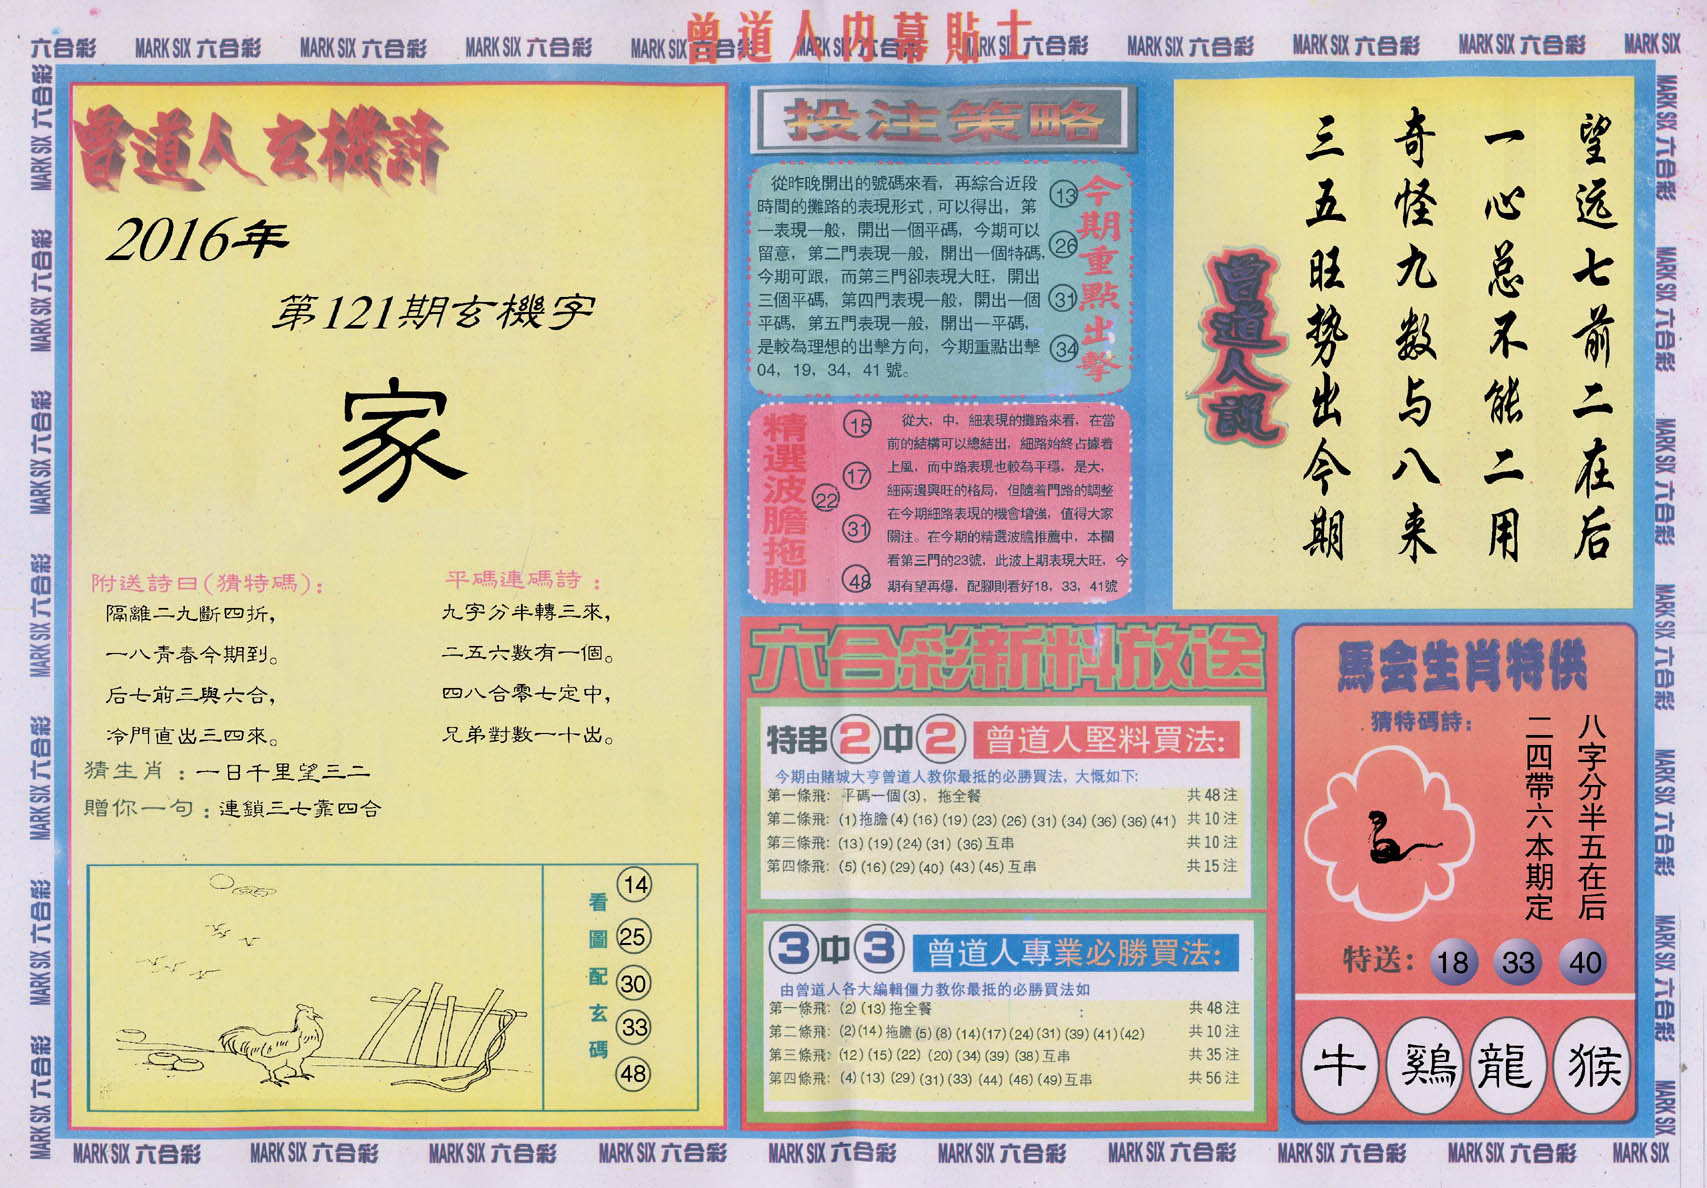 曾道人内幕貼士
六合彩 MARK SIX 六合彩 MARK SIX 六合彩 MARK SIX 六合彩 MARK SIX 六合彩 MARK SIX 六合彩 MARK SIX 六合彩 MARK SIX 六合彩 MARK SIX 六合彩 MARK SIX 六合彩 MARK SIX
曾道人玄機詩
2016年
第121期玄機字
家
附送詩曰(猜特碼):
隔離二九斷四折,
一八青春今期到。
后七前三與六合,
冷門直出三四來。
平碼連碼詩:
九字分半轉三來,
二五六數有一個。
四八合零七定中,
兄弟對數一十出。
猜生肖:一日千里望三二
贈你一句:連鎖三七靠四合
看圖配玄碼
14
25
30
33
48
投注策略
從昨晚開出的號碼來看，再綜合近段
時間的攤路的表現形式,可以得出，第
一表現一般，開出一個平碼，今期可以
留意，第二門表現一般，開出一個特碼,
今期可跟，而第三門卻表現大旺，開出
三個平碼，第四門表現一般，開出一個
平碼，第五門表現一般，開出一平碼，
是較為理想的出擊方向，今期重點出擊
04，19，34，41 號。
13
26
31
34
今期重點出擊
精選波膽拖脚
15
17
22
31
48
從大，中，細表現的攤路來看，在當
前的結構可以總結出，細路始終占據着
上風，而中路表現也較為平穩，是大，
細兩邊興旺的格局，但隨着門路的調整
在今期細路表現的機會增強，值得大家
關注。在今期的精選波膽推薦中，本欄
看第三門的23號，此波上期表現大旺，今
期有望再爆，配腳則看好18，33，41號
六合彩新料放送
特串2中2 曾道人堅料買法:
今期由賭城大亨曾道人教你最抵的必勝買法，大慨如下:
第一條飛: 平碼一個(3)，拖全餐 共48注
第二條飛: (1)拖膽(4)(16)(19)(23)(26)(31)(34)(36)(36)(41) 共10注
第三條飛: (13)(19)(24)(31)(36)互串 共10注
第四條飛: (5)(16)(29)(40)(43)(45)互串 共15注
3中3 曾道人專業必勝買法:
由曾道人各大編輯僵力教你最抵的必勝買法如
第一條飛: (2)(13)拖全餐 共48注
第二條飛: (2)(14)拖膽(5)(8)(14)(17)(24)(31)(39)(41)(42) 共10注
第三條飛: (12)(15)(22)(20)(34)(39)(38)互串 共35注
第四條飛: (4)(13)(29)(31)(33)(44)(46)(49)互串 共56注
望远七前二在后
一心总不能二用
奇怪九数与八来
三五旺势出今期
曾道人説
馬会生肖特供
猜特碼詩:
八字分半五在后
二四帶六本期定
特送: 18 33 40
牛 鷄 龍 猴
MARK SIX 六合彩 MARK SIX 六合彩 MARK SIX 六合彩 MARK SIX 六合彩 MARK SIX 六合彩 MARK SIX 六合彩 MARK SIX 六合彩 MARK SIX 六合彩 MARK SIX 六合彩 MARK SIX